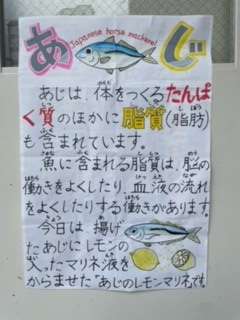 あじ
Japanese horse mackerel
あじは、体をつくるたんぱ
く質のほかに脂質(脂肪)
も含まれています。
魚に含まれる脂質は、脳の
働きをよくしたり、血液の流れ
をよくしたりする働きがあります。
今日は、揚げ
たあじにレモンの
入ったマリネ液を
からませた"あじのレモンマリネ"です。